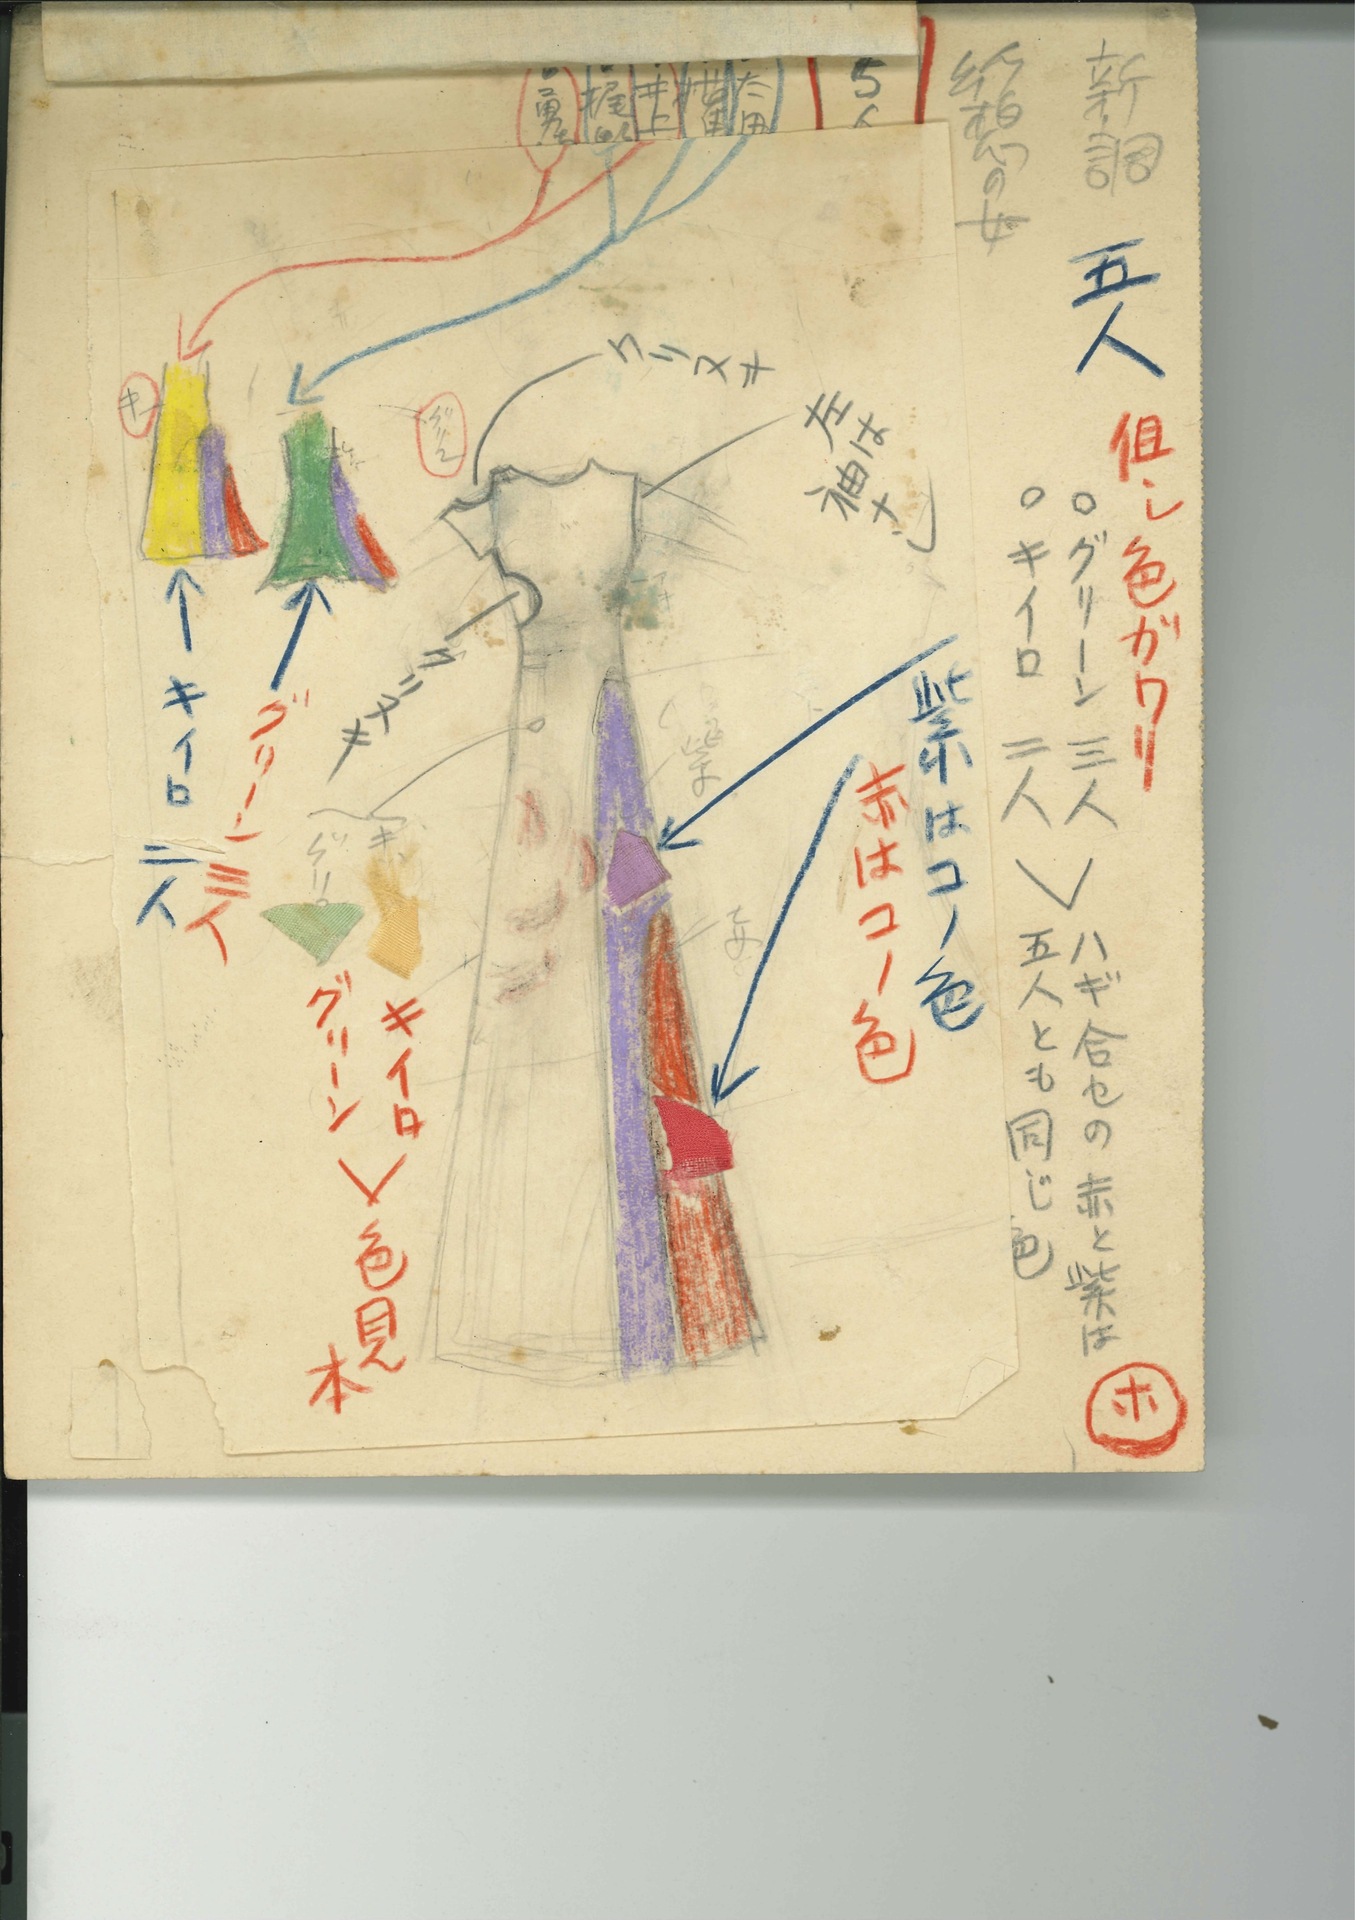 新調
五人
但し色ガワリ
○グリーン 三人
○キイロ 二人
ハギ合セの赤と紫は
五人とも同じ色
ホ
想の女
5人
太田
井上
クリヌキ
左は
袖ナし
キ
グリーン
クリヌキ
紫はコノ色
赤はコノ色
紫
赤
キイロ 二人
グリーン 三人
グリ
キ
キイロ
グリーン
色見本